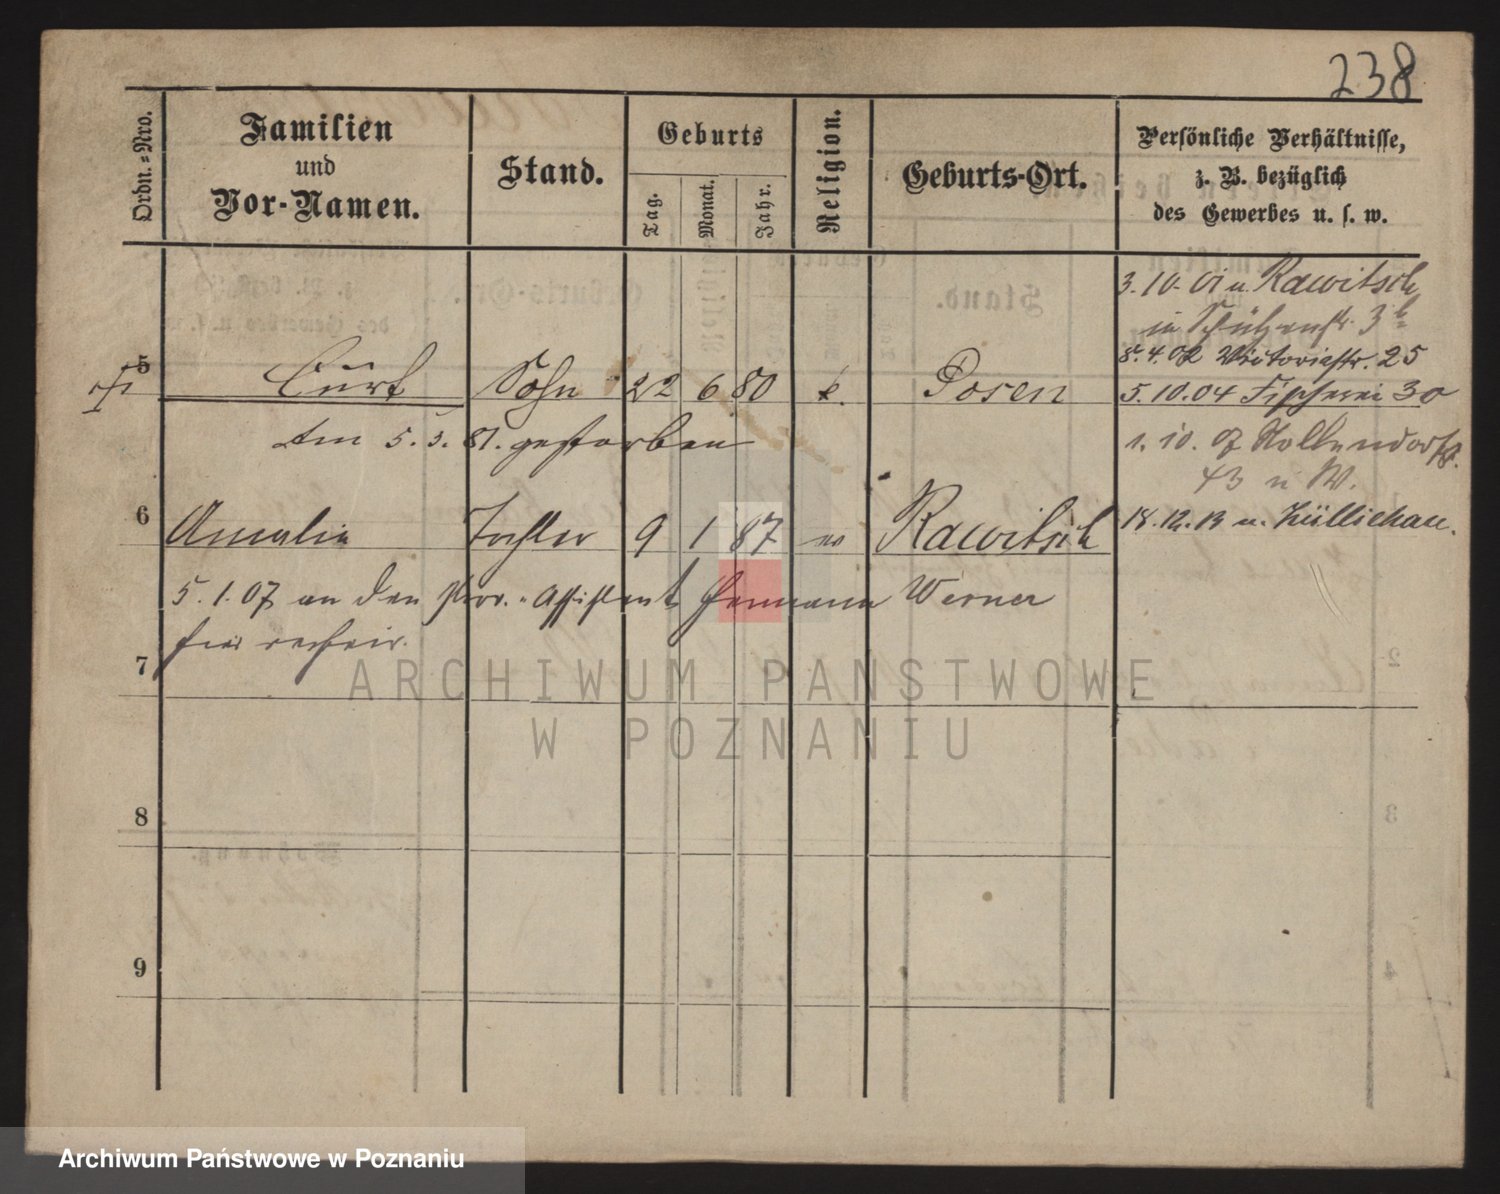 238
Ordn.=Nro.
Familien
und
Vor-Namen.
Stand.
Geburts
Tag.
Monat.
Jahr.
Religion.
Geburts-Ort.
Persönliche Verhältnisse,
z. B. bezüglich
des Gewerbes u. s. w.
3.10.01 n. Rawitsch
in Schützenstr. 3b
8.4.02 Victoriastr. 25
5 Curt Sohn 22 6 80 k. Posen
5.10.04 Fischerei 30
am 5.3.81. gestorben
1.10.07 Nollendorfstr.
43 n W.
6 Amalie Tochter 9 1 87 Rawitsch
18.12.13 n. Züllichau.
5.1.07 an den Assistent Hermann Werner
7
8
9
ARCHIWUM PAŃSTWOWE
W POZNANIU
Archiwum Państwowe w Poznaniu